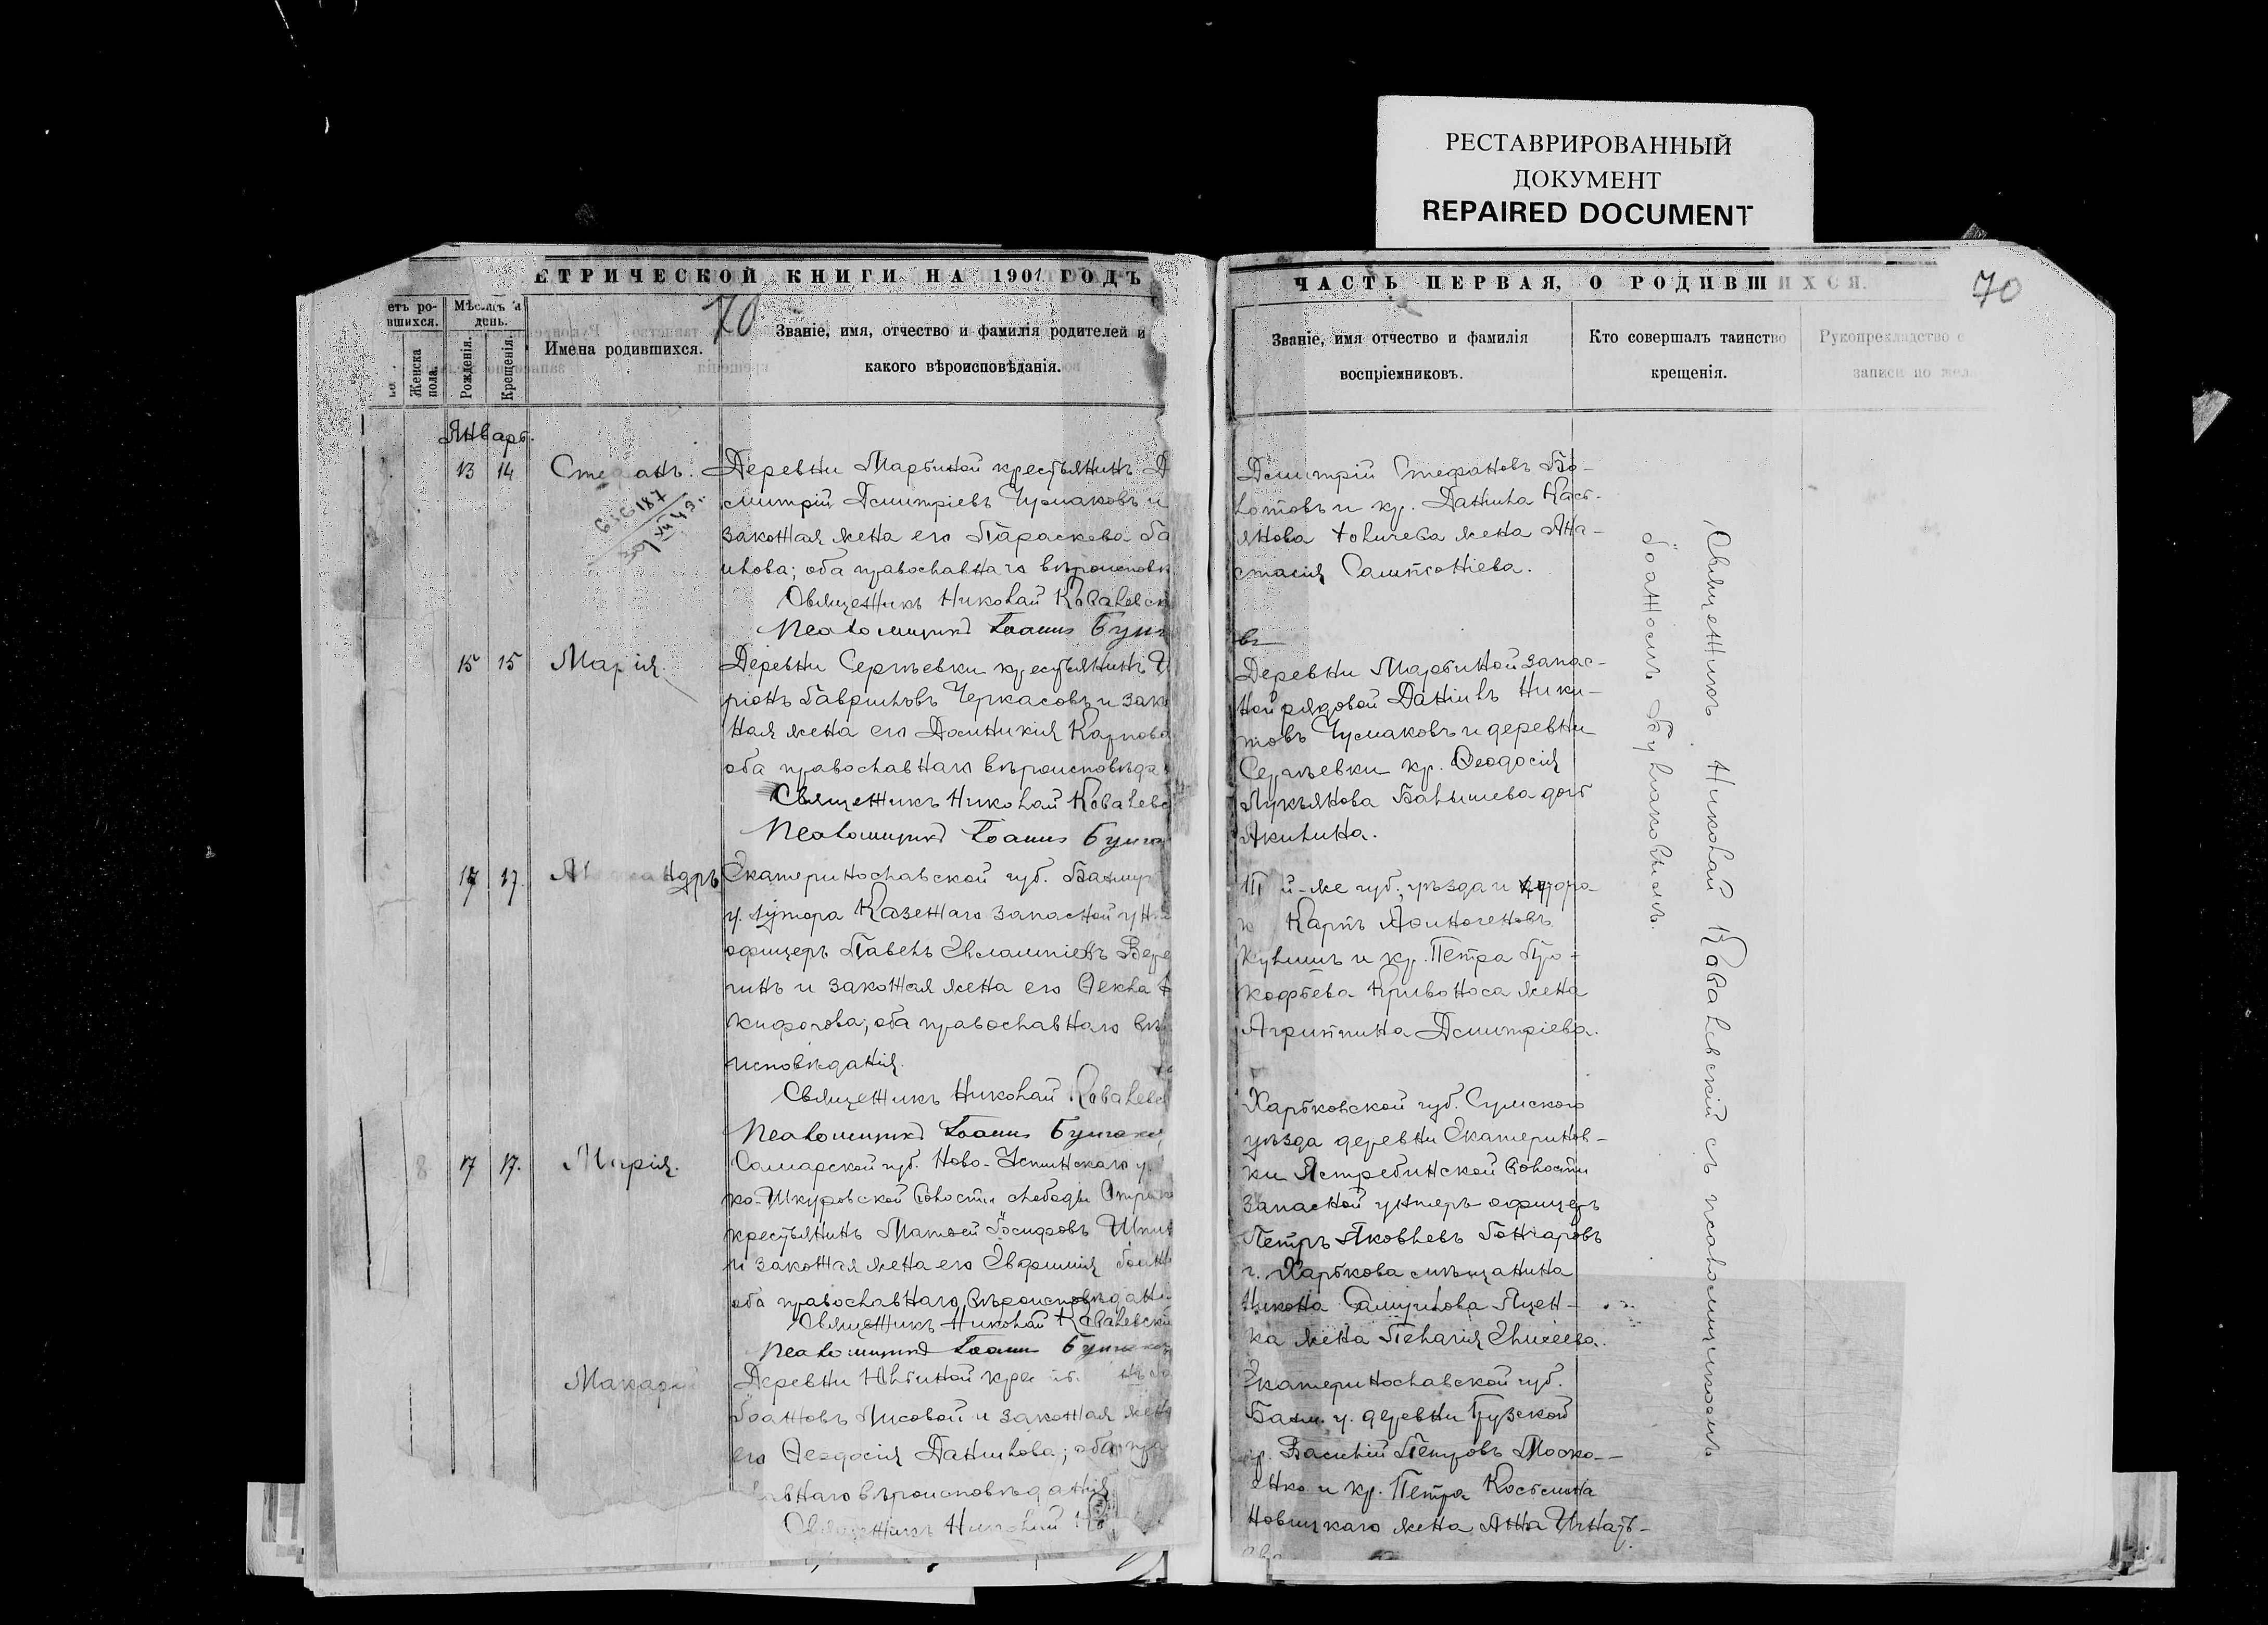 РЕСТАВРИРОВАННЫЙ
ДОКУМЕНТ
REPAIRED DOCUMENT
ЕТРИЧЕСКОЙ КНИГИ НА 1901 ГОДЪ
70
етъ ро-
вшихся.
Женска
пола.
Мѣсяцъ и
день.
Рожденія.
Крещенія.
Имена родившихся.
Званіе, имя, отчество и фамилія родителей и
какого вѣроисповѣданія.
Январь.
13 14 Стефанъ. Деревни Марьиной крестьянинъ Д
митрій Дмитріевъ Чумаковъ и
законная жена его Параскева Га
илова; оба православнаго вѣроисповѣ
Священникъ Николай Ковалевск
Псаломщикъ Іоаннъ Булга
15 15 Марія. Деревни Сергѣевки крестьянинъ И
ріонъ Гавриловъ Черкасовъ и зак
ная жена его Домникія Карпова
оба православнаго вѣроисповѣда
Священникъ Николай Ковалевс
Псаломщикъ Іоаннъ Булга
17 17. Александръ Екатеринославской губ. Бахмут
у. хутора Казеннаго запасной ун
офицеръ Павелъ Евлампіевъ Вере
гинъ и законная жена его Ѳекла
кифорова; оба православнаго вѣ
исповѣданія.
Священникъ Николай Ковалевс
Псаломщикъ Іоаннъ Булгаков
8 17 17. Марія. Самарской губ. Ново-Узенскаго у.
волости слободы
крестьянинъ Матѳей Іосифовъ
и законная жена его Евфимія Іоанн
оба православнаго вѣроисповѣдані
Священникъ Николай Ковалевскі
Псаломщикъ Іоаннъ Булгаков
Макарі Деревни Юльиной крес
Іоанновъ Лисовой и законная жена
его Ѳеодосія Данилова; оба пра
лавнаго вѣроисповѣданія
Священникъ Николай
ЧАСТЬ ПЕРВАЯ, О РОДИВШИХСЯ.
70
Званіе, имя отчество и фамилія
воспріемниковъ.
Кто совершалъ таинство
крещенія.
Рукоприкладство с
записи по жел
Дмитрій Стефановъ Бо-
лотовъ и кр. Данила Кась-
янова жена Ана-
стасія Сампсоніева.
въ
Деревни Марьиной запас-
ной рядовой Даніилъ Ники-
товъ Чумаковъ и деревни
Сергѣевки кр. Ѳеодосія
Лукьянова Балышева дочь
Акилина.
й-же губ., уѣзда и хутора
Карпъ
и кр. Петра Про-
кофьева Кривоноса жена
Агриппина Дмитріева.
Харьковской губ. Сумского
уѣзда деревни Екатеринов-
ки Ястребинской волости
запасной унтеръ-офицеръ
Петръ Яковлевъ Гончаровъ
г. Харькова мѣщанина
Никона Самуилова Яцен-
ка жена Пелагія Елисеева.
Екатеринославской губ.
Бахм. у. деревни Грузской
кр. Василій Петровъ Моска-
енко и кр. Петра Косьмина
Новицкаго жена Анна Игнать-
ева
Священникъ Николай Ковалевскій съ псаломщикомъ
Іоанномъ Булгаковымъ.